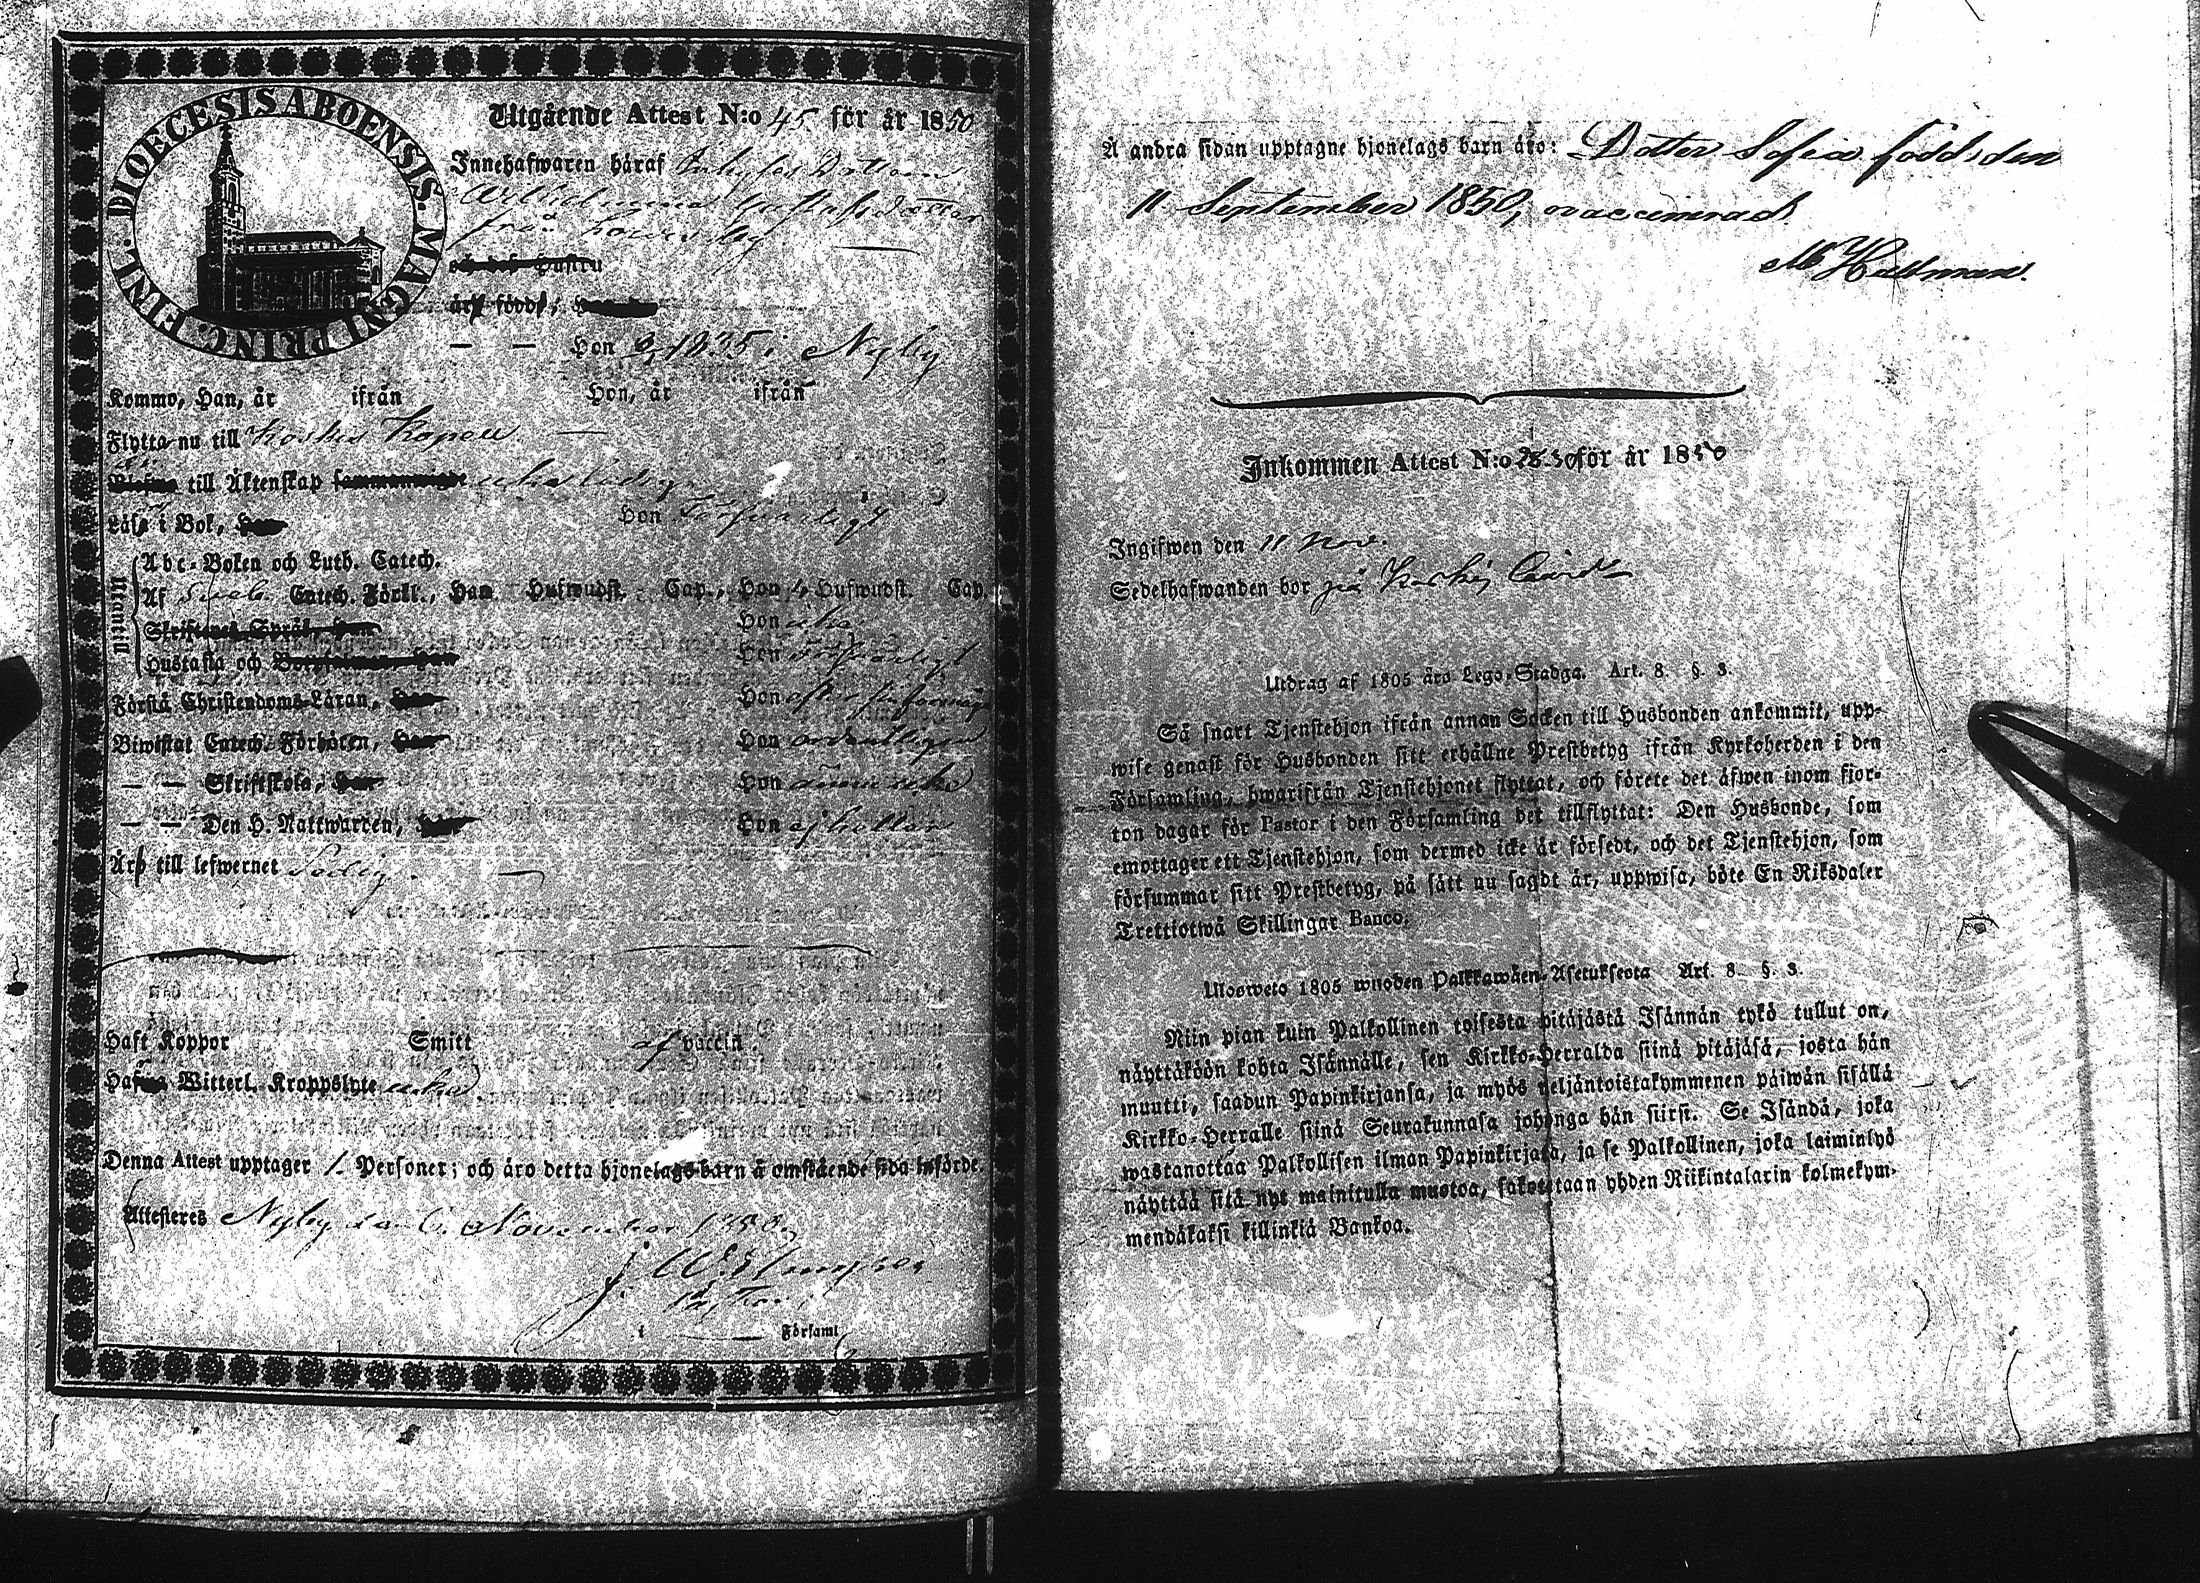 DIOECESIS ABOENSIS. MAGNI PRINC. FINL.
Utgående Attest N:o 45. för år 1850
Innehafwaren håraf Dottern
Wilhelmina Gustafsdotter
från
och des Hustru
år född,
— — Hon 1835 i Nyby
Kommo, Han, år ifrån Hon, år ifrån
Flytta nu till Koskis Kapell —
till Äktenskap ledig
Läsa i Bok, Hon Försvarligt
Utantill
Abc-Boken och Luth. Catech.
Af Sveb. Catech. Förkl., Han Hufwudst. Cap., Hon 4 Hufwudst. Cap.
Skriftenes Språk, Han Hon icke
Hustafla och Hon försvarligt
Förstå Christendoms-Läran, Han Hon efter sin förmåga
Biwistat Catech. Förhören, Han Hon ordentligen
— — Skriftskola, Han Hon ännu icke
— — Den H. Nattwarden, Han Hon ej heller
Är till lefwernet Sedig. —
Haft Koppor Smitt af vaccin.
Hafwa Witterl. Kroppslyte icke
Denna Attest upptager 1. Personer; och äro detta hjonelags barn å omstående sida införde.
Attesteres Nyby den 6. November 1850.
Pastor.
i —— Församl
Å andra sidan upptagne hjonelags barn äro: Dotter Sofia född den
11 September 1850, vaccinerad
M Hallman.
Inkommen Attest N:o för år 1850
Ingifwen den 11 Nov.
Sedelhafwanden bor på Koskis Gård
Utdrag af 1805 års Lego-Stadga. Art. 8. §. 3.
Så snart Tjenstehjon ifrån annan Socken till Husbonden ankommit, upp-
wise genast för Husbonden sitt erhållne Prestbetyg ifrån Kyrkoherden i den
Församling, hwarifrån Tjenstehjonet flyttat, och förete det äfwen inom fjor-
ton dagar för Pastor i den Församling det tillflyttat: Den Husbonde, som
emottager ett Tjenstehjon, som dermed icke är försedt, och det Tjenstehjon, som
försummar sitt Prestbetyg, på sätt nu sagdt är, uppwisa, böte En Riksdaler
Trettiotwå Skillingar Banco.
Ulosweto 1805 wuoden Palkkawäen-Asetuksesta Art. 8. §. 3.
Niin pian kuin Palkollinen toisesta pitäjästä Isännän tykö tullut on,
näyttäköön kohta Isännälle, sen Kirkko-Herralda siinä pitäjäsä, josta hän
muutti, saadun Papinkirjansa, ja myös neljäntoistakymmenen päiwän sisällä
Kirkko-Herralle siinä Seurakunnasa johonga hän siirsi. Se Isändä, joka
wastanottaa Palkollisen ilman Papinkirjata, ja se Palkollinen, joka laiminlyö
näyttää sitä nyt mainitulla muotoa, sakotetaan yhden Riikintalarin kolmekym-
mendäkaksi killinkiä Bankoa.